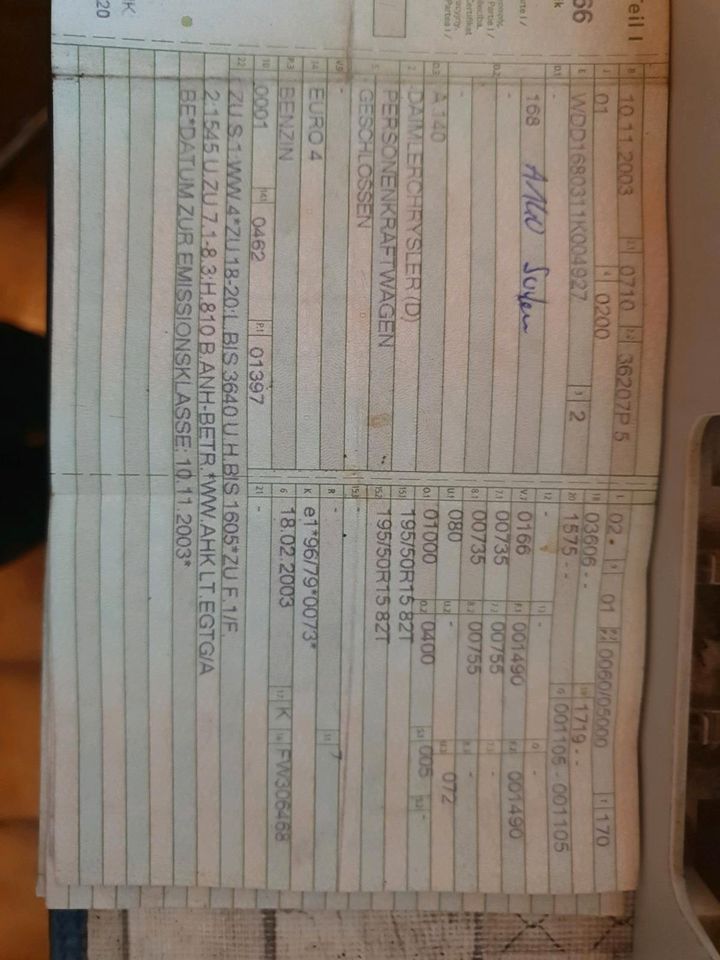 Teil I
B 10.11.2003 2.1 0710 2.2 36207P 5
J 01 4 0200
E WDD1680311K004927 3 2
D.1 -
168 AMW
D.2 -
-
-
D.3 A 140
2 DAIMLERCHRYSLER (D)
5 PERSONENKRAFTWAGEN
GESCHLOSSEN
V.9 -
14 EURO 4
P.3 BENZIN
10 0001 14.1 0462 P.1 01397
L 02 9 01 P.2 0060/05000 T 170
18 03606 - - 19 1719 - -
20 1575 - - G 001105 - 001105
12 - 13 - Q -
V.7 0166 F.1 001490 F.2 001490
7.1 00735 7.2 00755 7.3 -
8.1 00735 8.2 00755 8.3 -
U.1 080 U.2 - U.3 072
O.1 01000 O.2 0400 S.1 005 S.2 -
15.1 195/50R15 82T
15.2 195/50R15 82T
15.3 -
R - 11 7
K e1*96/79*0073*
6 18.02.2003 17 K 16 FW306468
21 -
22 ZU S.1:WW.4*ZU 18-20:L.BIS 3640 U.H.BIS 1605*ZU F.1/F.
2:1545 U.ZU 7.1-8.3:H.810 B.ANH-BETR.*WW.AHK LT.EGTG/A
BE*DATUM ZUR EMISSIONSKLASSE: 10.11.2003*